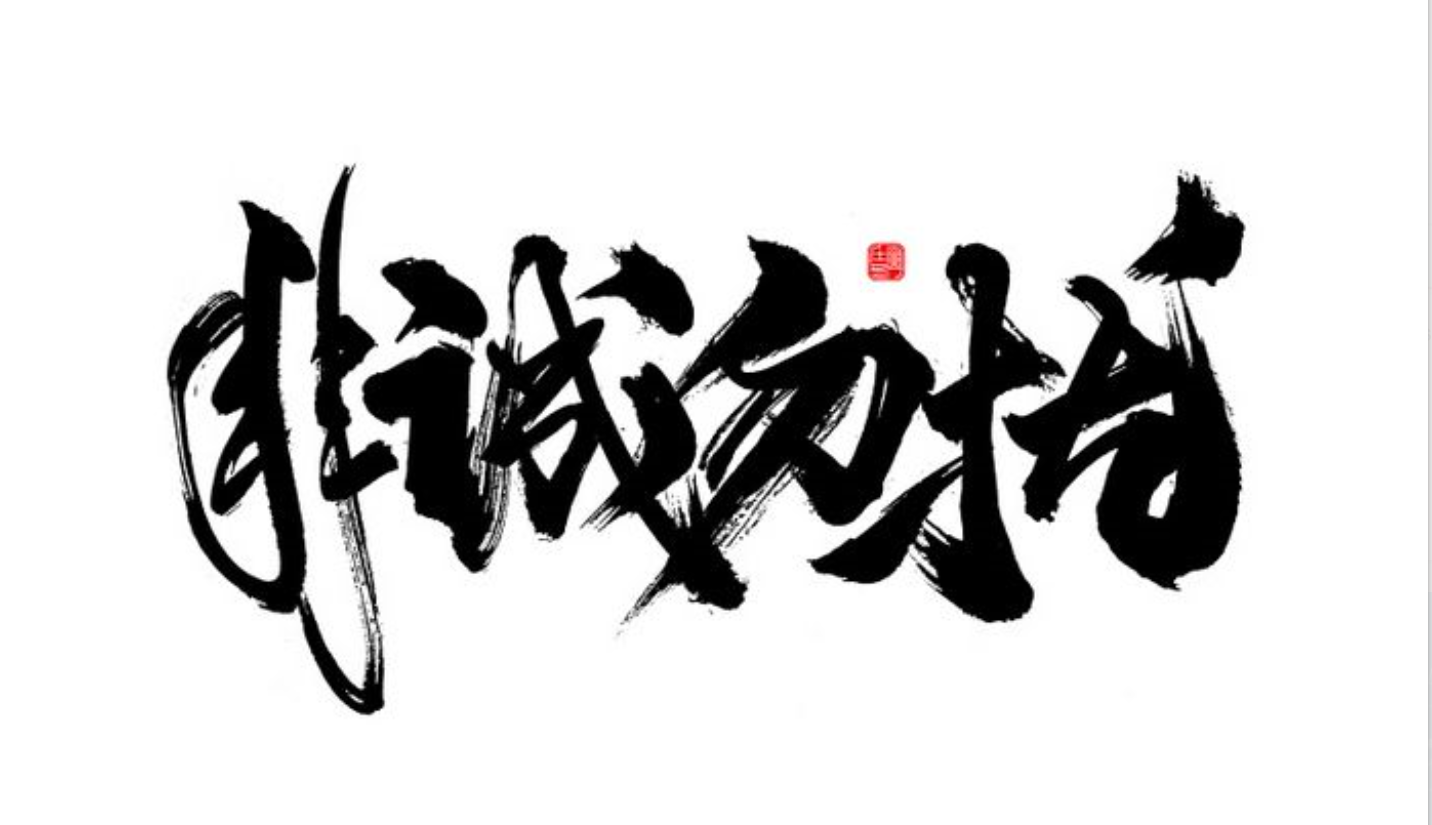 非诚勿扰